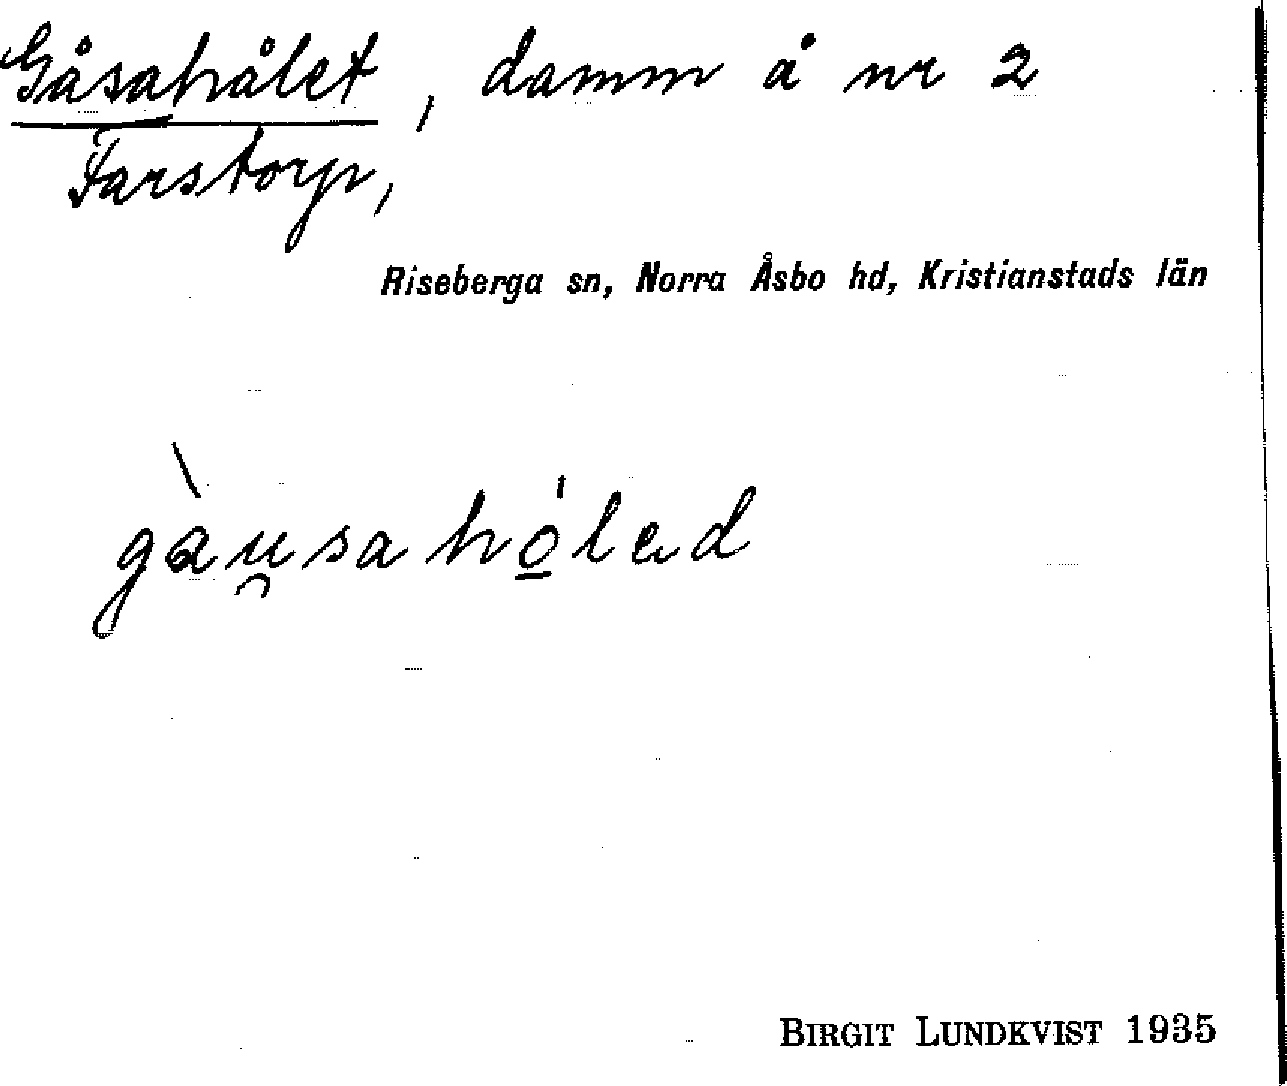 Gåsahålet, damm å nr 2
Farstorp,
Riseberga sn, Norra Åsbo hd, Kristianstads län
gàu̯sahó̱led
BIRGIT LUNDKVIST 1935